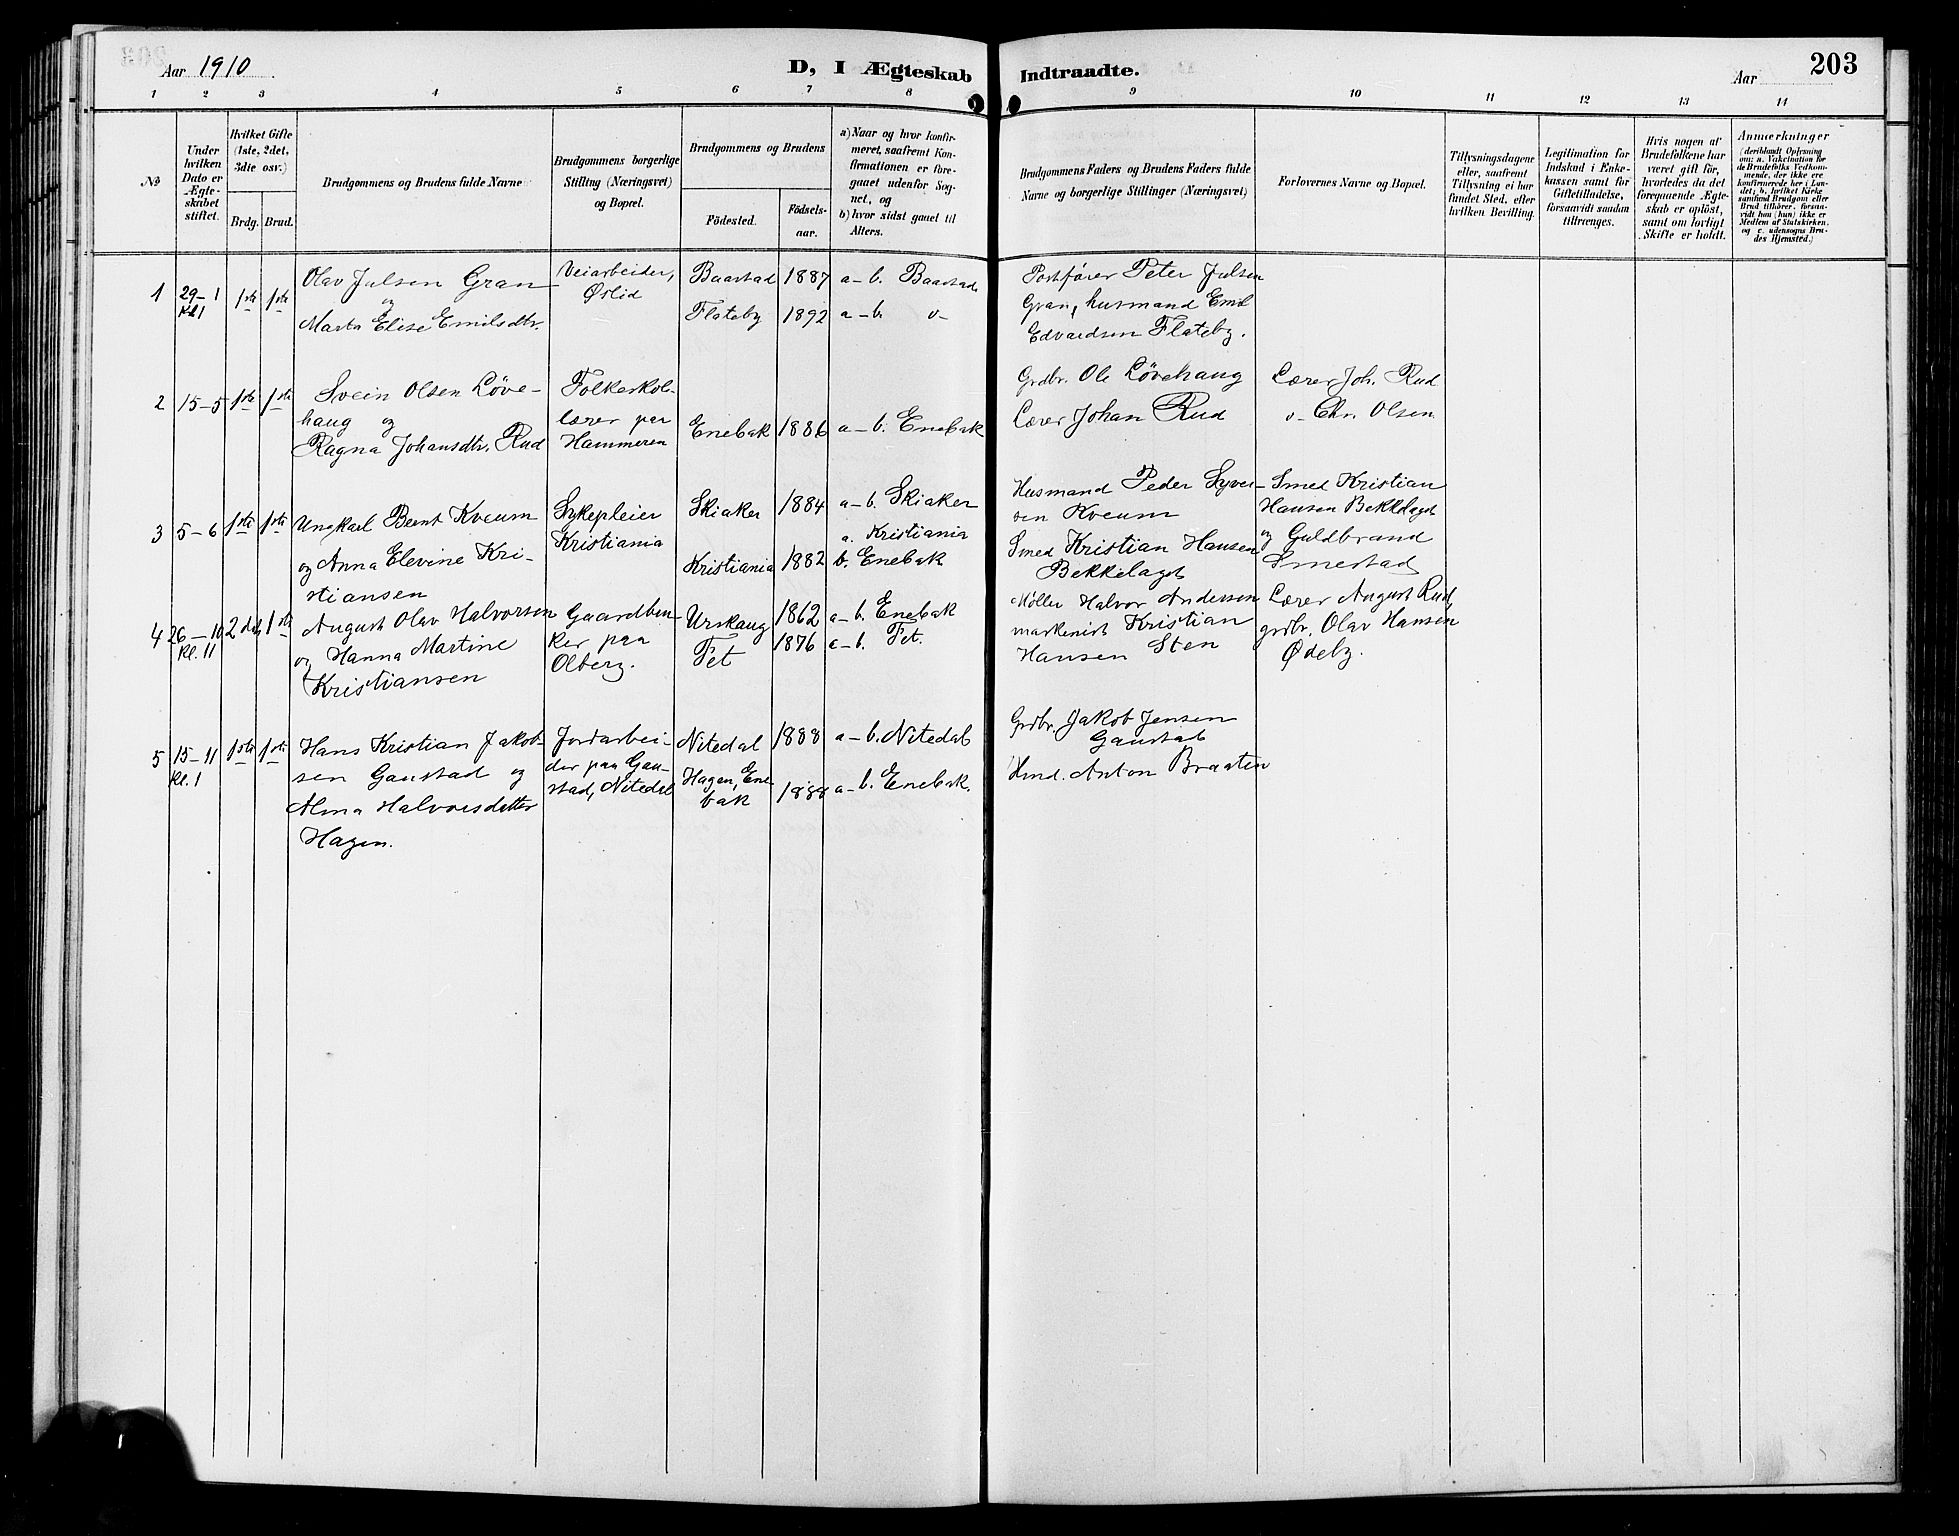 Aar 1910
D, I Ægteskab Indtraadte.
Aar
203
1 2 3 4 5 6 7 8 9 10 11 12 13 14
No
Under hvilken Dato er Ægteskabet stiftet.
Hvilket Gifte (1ste, 2det, 3die osv.)
Brdg. Brud.
Brudgommens og Brudens fulde Navne
Brudgommens borgerlige Stilling (Næringsvei) og Bopæl.
Brudgommens og Brudens
Födested.
Födsels-aar.
a) Naar og hvor konfirmeret, saafremt Konfirmationen er foregaaet udenfor Sognet, og
b) hvor sidst gaaet til Alters.
Brudgommens Faders og Brudens Faders fulde Navne og borgerlige Stillinger (Næringsvei)
Forlovernes Navne og Bopæl.
Tillysningsdagene eller, saafremt Tillysning ei har fundet Sted, efter hvilken Bevilling.
Legitimation for Indskud i Enkekassen samt for Giftetilladelse, forsaavidt saadan tiltrænges.
Hvis nogen af Brudefolkene har været gift för, hvorledes da det foregaaende Ægteskab er oplöst, samt om lovligt Skifte er holdt.
Anmærkninger
(deriblandt Oplysning om: a. Vakcination for de Brudefolks Vedkommende, der ikke ere konfirmerede her i Landet; b. hvilket Kirkesamfund Brudgom eller Brud tilhörer, forsaavidt han (hun) ikke er Medlem af Statskirken, og c. udensogns Brudes Hjemsted.)
1 29-1 Kl 1 1ste 1ste
Olav Julsen Gran
og
Marta Elise Emilsdtr.
Veiarbeider,
Øslid
Baastad 1887 a-b. Baastad
Flateby 1892 a-b. o-
Postfører Peter Julsen
Gran, husmand Emil
Edvardsen Flateby.
2 15-5 1ste 1ste
Svein Olsen Løve-
haug og
Ragna Johansdtr. Rud
Folkeskol-
lærer paa
Hammeren
Enebak 1886 a-b. Enebak
Grdbr. Ole Løvehaug
Lærer Johan Rud
Lærer Joh. Rud
o- Chr. Olsen
3 5-6 1ste 1ste
Ungkarl Bernt Kveum
og Anna Elevine Kri-
stiansen
Sykepleier
Kristiania
Skiaker 1884 a-b. Skiaker
a. Kristiania
Kristiania 1882 b. Enebak
Husmand Peder Syver-
sen Kveum
Smed Kristian Hansen
Bekkelaget
Smed Kristian
Hansen Bekkelaget
og Guldbrand
Smestad
4 26-10 Kl. 11 2det 1ste
August Olav Halvorsen
og Hanna Martine
Kristiansen
Gaardbru-
ker paa
Olberg.
Urskaug 1862 a-b. Enebak
Fet 1876 a-b. Fet.
Møller Halvor Andersen
maskenist Kristian
Hansen Sten
Lærer August Rud,
grdbr. Olav Hansen
Ødeby.
5 15-11 Kl. 1 1ste 1ste
Hans Kristian Jakob-
sen Gaustad og
Alma Halvorsdatter
Hagen.
Jordarbei-
der paa Gau-
stad, Nitedal
Nitedal 1888 a-b. Nitedal
Hagen, Ene-
bak 1888 a-b. Enebak.
Grdbr. Jakob Jensen
Gaustad
Hmd. Anton Braaten